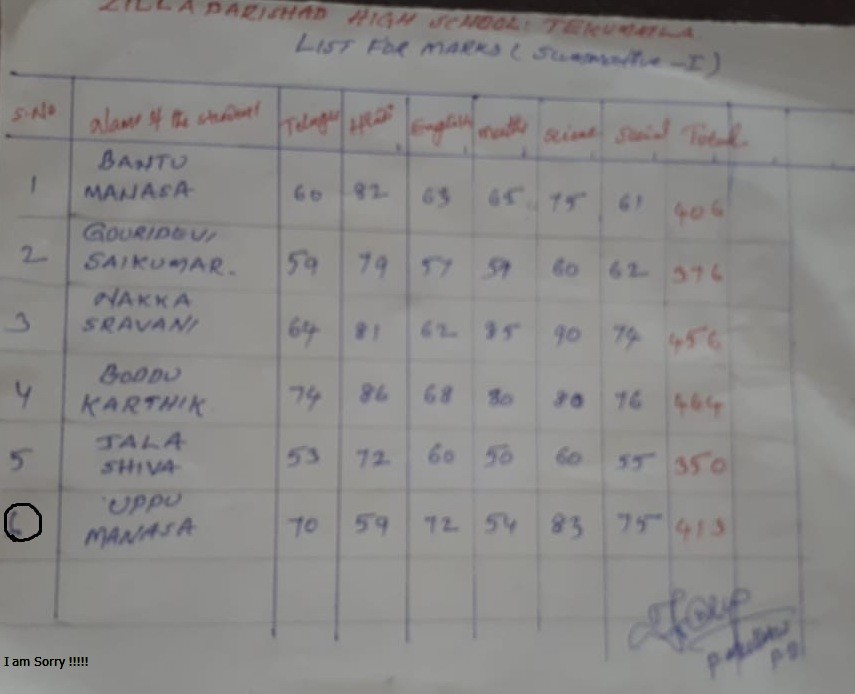 ZILLA PARISHAD HIGH SCHOOL: TEKUMATLA
LIST FOR MARKS ( Summative - I )
S.No Name of the student Telugu Hindi English maths Science Social Total
1 BANTU MANASA 60 82 63 65 75 61 406
2 GOURIDEVI SAIKUMAR. 59 79 57 59 60 62 376
3 NAKKA SRAVANI 64 81 62 85 90 74 456
4 BODDU KARTHIK 74 86 68 80 80 76 464
5 JALA SHIVA 53 72 60 50 60 55 350
6 UPPU MANASA 70 59 72 54 83 75 413
I am Sorry !!!!!